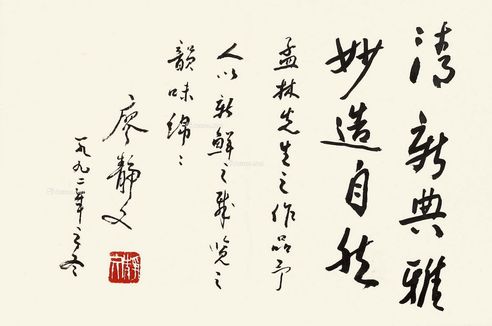 清新典雅
妙造自然
孟林先生之作品予
人以新鲜之感览之
韵味绵〻
廖静文
一九九二年之冬
静文